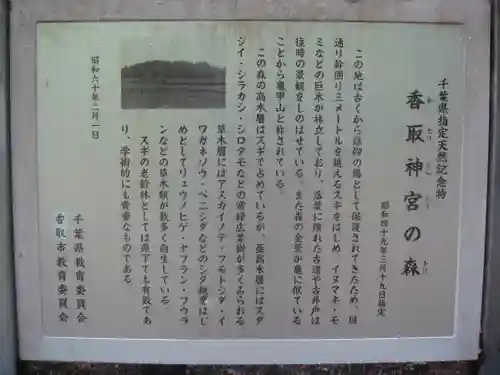 千葉県指定天然記念物
香取神宮の森
かとりじんぐう もり
昭和四十九年三月十九日指定
この地は古くから信仰の場として保護されてきたため、目
通り幹囲り三メートルを越えるスギをはじめ、イヌマキ・モ
ミなどの巨木が林立しており、落葉に埋れた古道や古井戸は
往時の景観をしのばせている。また森の全景が亀に似ている
ことから亀甲山と称されている。
この森の高木層はスギで占めているが、亜高木層にはスダ
ジイ・シラカシ・シロダモなどの常緑広葉樹が多くみられる
草木層にはアスカイノデ・フモトシダ・イ
ワガネソウ・ベニシダなどのシダ類をはじ
めとしてリュウノヒゲ・ヤブラン・フウラ
ンなどの草木類が数多く自生している。
スギの老齢林としては県下でも有数であ
り、学術的にも貴重なものである。
昭和六十年三月一日
千葉県教育委員会
香取市教育委員会